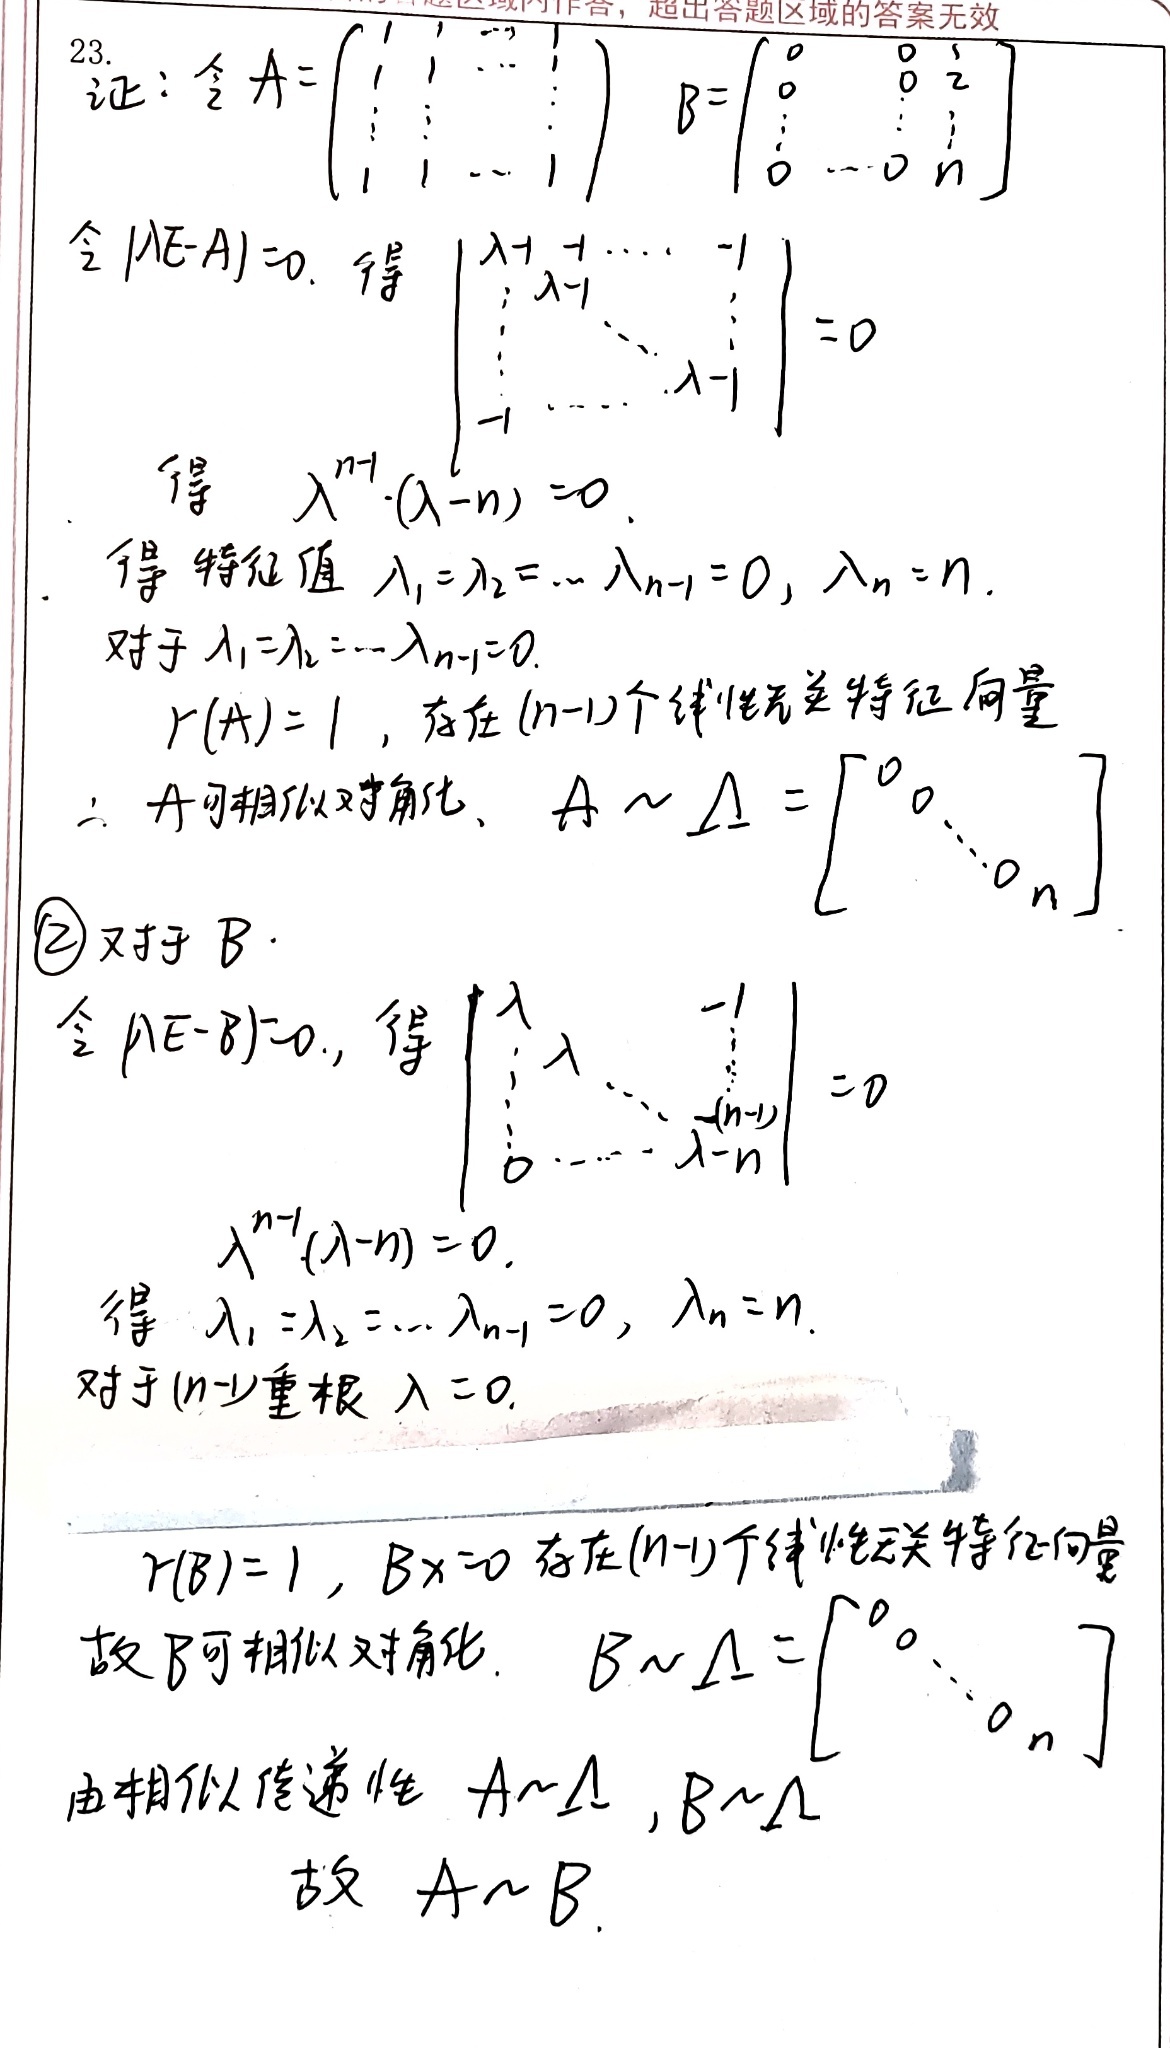 答题区域内作答，超出答题区域的答案无效
23.
证：令 A = ( 1 1 … 1 ; 1 1 … 1 ; ⋮ ⋮ ⋮ ; 1 1 … 1 ) B = [ 0 0 1 ; 0 0 2 ; ⋮ ⋮ ⋮ ; 0 … 0 n ]
令 |λE-A| = 0. 得 | λ-1 -1 …. -1 ; ⋮ λ-1 ⋮ ; ⋱ λ-1 ; -1 …. | = 0
得 λ^{n-1}·(λ-n) = 0.
得 特征值 λ₁ = λ₂ = … λ_{n-1} = 0, λ_n = n.
对于 λ₁ = λ₂ = … λ_{n-1} = 0.
r(A) = 1 , 存在 (n-1)个线性无关特征向量
∴ A可相似对角化、 A ~ Λ = [ 0 0 ⋱ 0 n ]
② 对于 B.
令 |λE-B| = 0., 得 | λ -1 ; ⋮ λ ⋮ ; ⋱ -(n-1) ; 0 …. λ-n | = 0
λ^{n-1}·(λ-n) = 0.
得 λ₁ = λ₂ = … λ_{n-1} = 0, λ_n = n.
对于(n-1)重根 λ = 0.
r(B) = 1 , Bx = 0 存在(n-1)个线性无关特征向量
故B可相似对角化. B ~ Λ = [ 0 0 ⋱ 0 n ]
由相似传递性 A ~ Λ , B ~ Λ
故 A ~ B.